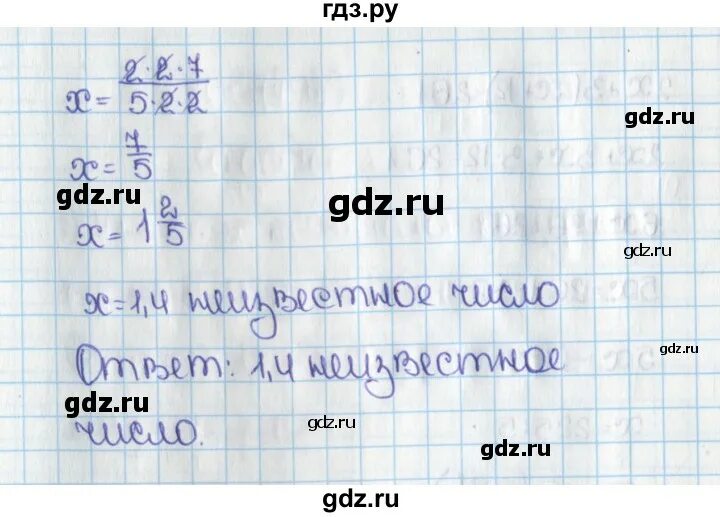 гдз.ру
x = 2·2·7 / 5·2·2
gdz.ru
x = 7/5
gdz.ru
gdz.ru
x = 1 2/5
gdz.ru
x = 1,4 неизвестное число
Ответ: 1,4 неизвестное
gdz.ru
gdz.ru
gdz.ru
число.
gdz.ru